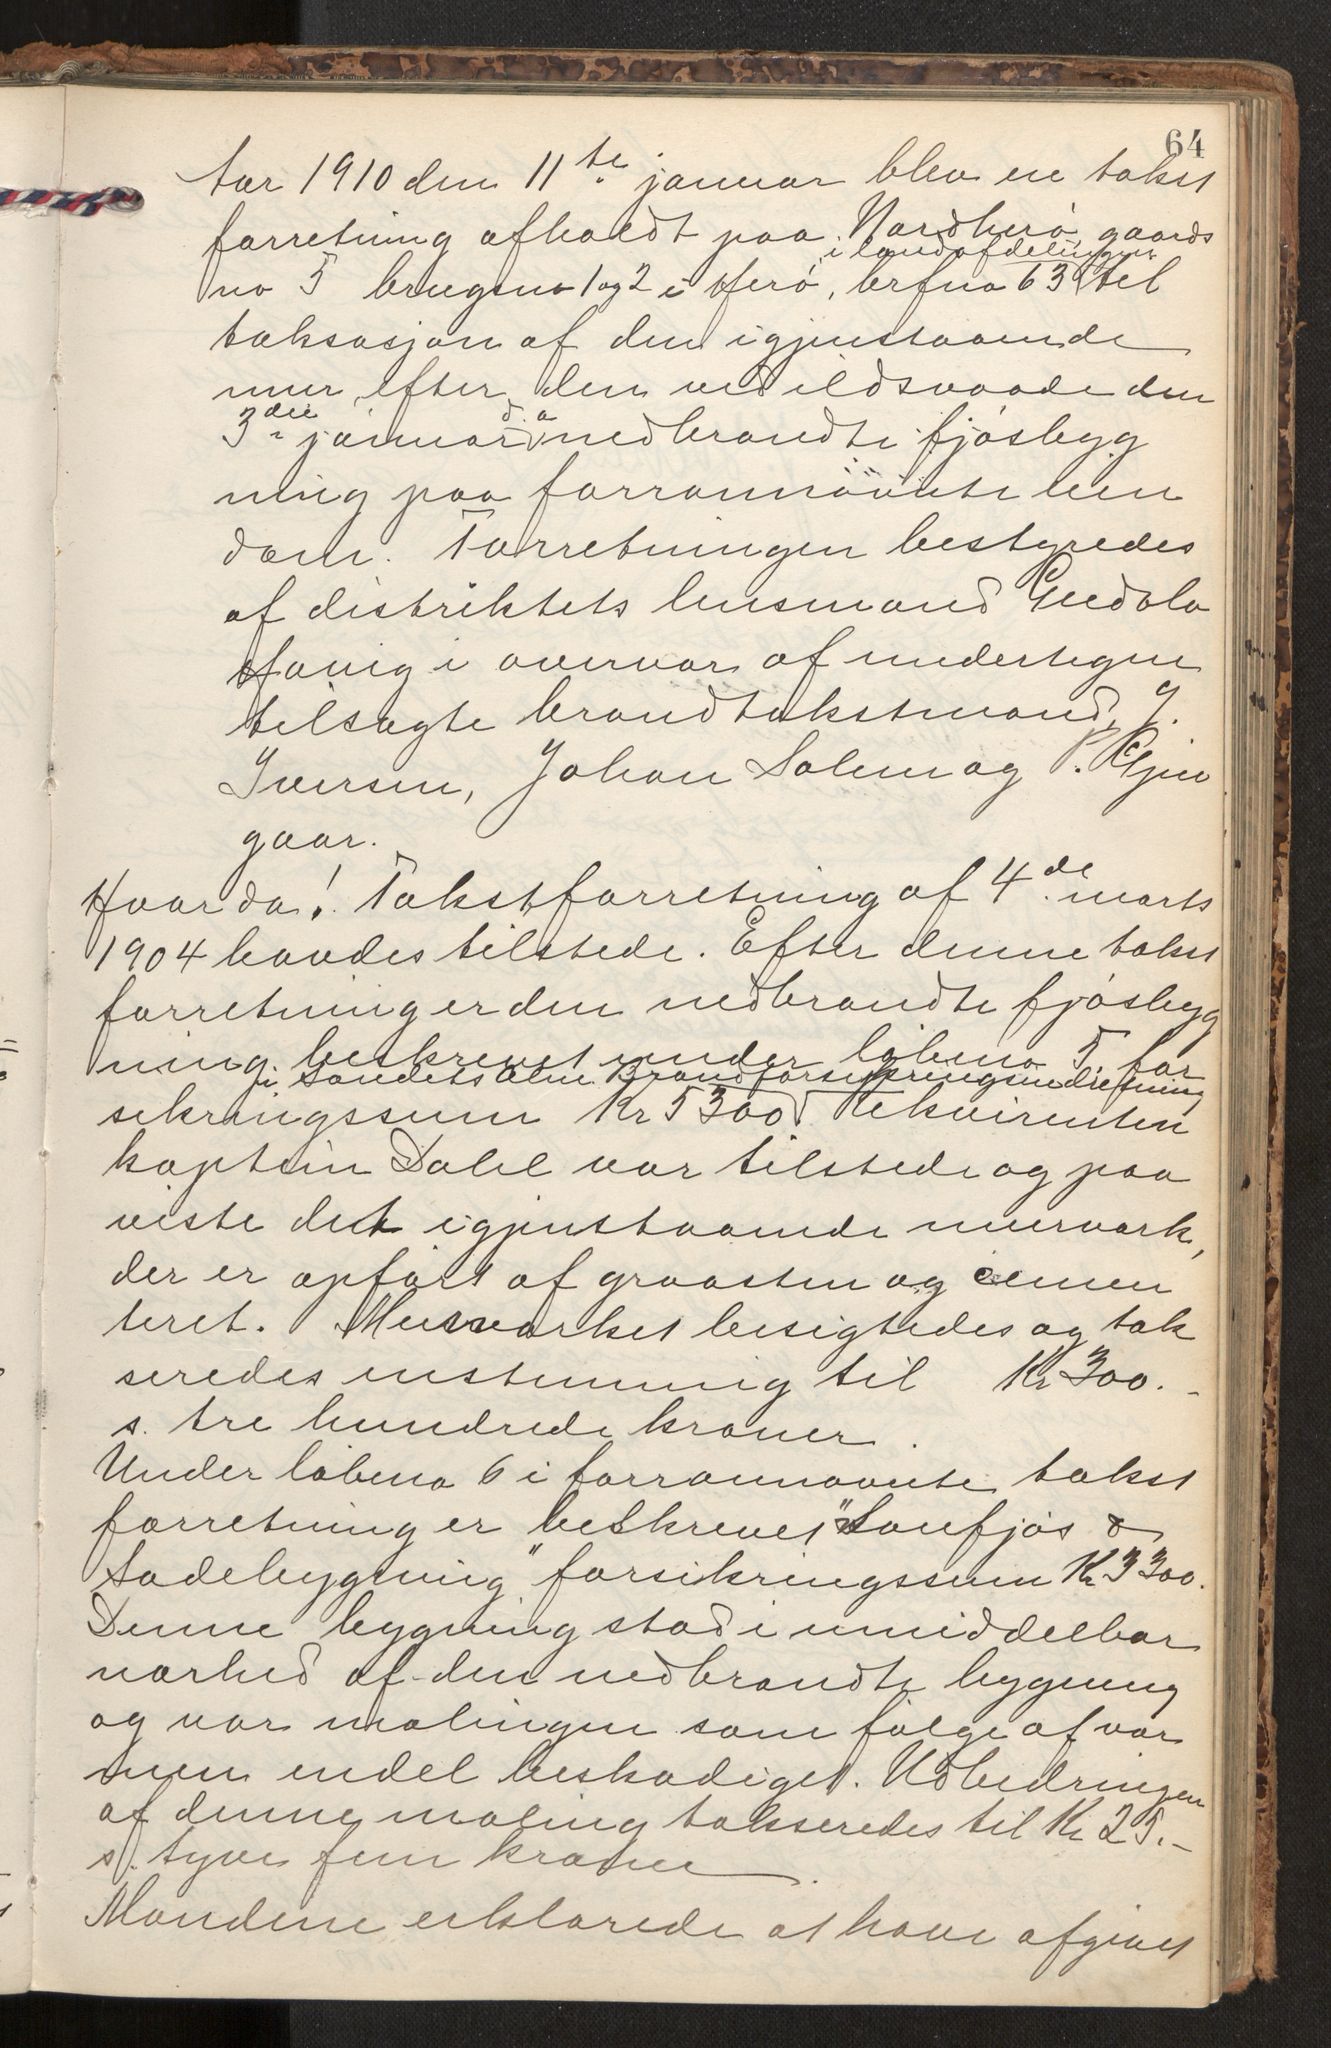 64
Aar 1910 den 11te januar blev en takst
forretning afholdt paa Nordherø, gaards
i landafdelingen
no 5 brugsno 1 og 2 i Herø, brfno 63 til
taksasjon af den igjenstaaende
mur efter den ved ildsvaade den
3die januar d. a. nedbrændte fjøsbyg
ning paa forannævnte eien
dom. Forretningen bestyredes
af distriktets lensmand Gudolo
Havig i overvær af undertegn
tilsagte brandtakstmænd, J.
Iversen, Johan Solem og P.
gaar.
Hvorda! Takstforretning af 4de marts
1904 havdes tilstede. Efter denne takst
forretning er den nedbrændte fjøsbyg
ning beskrevet under løbeno 5, for
i Landets Alm. Brandforsikringsindretning
sikringssum Kr 5300. Rekvirenten
kaptein Dahl var tilstede og paa
viste det igjenstaaende murværk,
der er opført af graasten og cemen
teret. Murværket besigtedes og tak
seredes enstemmig til Kr 300.-
s. tre hundrede kroner.
Under løbeno 6 i forannævnte takst
forretning er beskrevet "Saufjøs &
Ladebygning" forsikringssum Kr 3300.
Denne bygning stod i umiddelbar
nærhed af den nedbrændte bygning
og var malingen som følge af var
men endel beskadiget. Udbedringen
af denne maling takseredes til Kr 25.-
s. tyve fem kroner.
Mændene erklærede at have afgivet